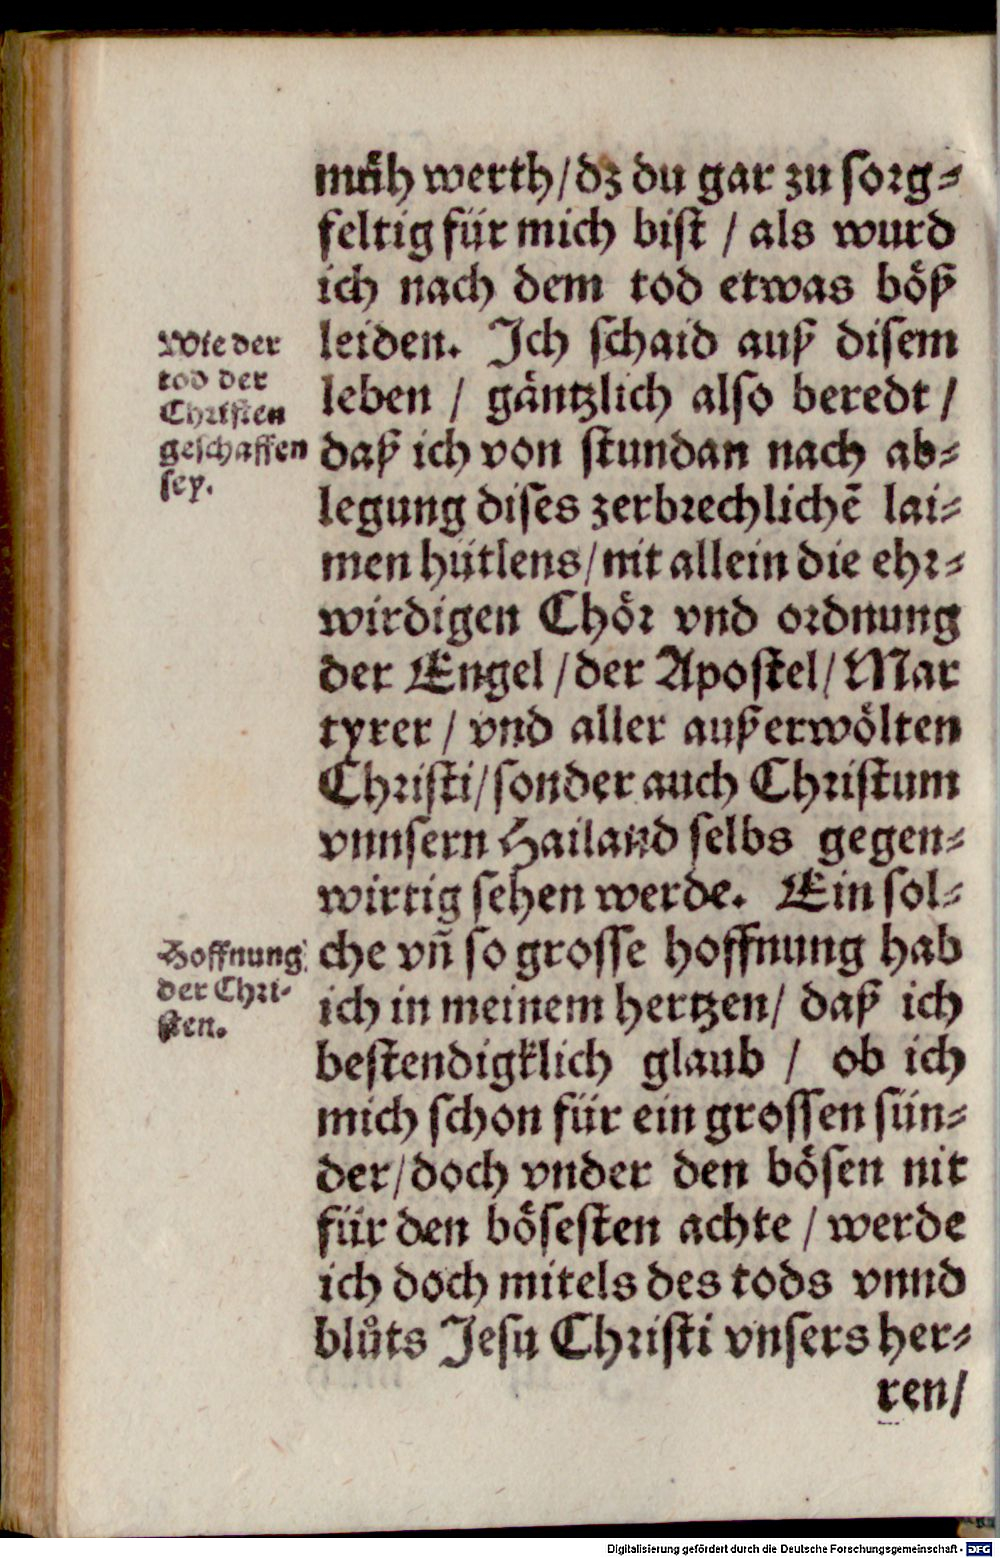 müh werth/dz du gar zu sorg-
feltig für mich bist / als wurd
ich nach dem tod etwas böß
leiden. Ich schaid auß disem
leben / gäntzlich also beredt /
daß ich von stundan nach ab-
legung dises zerbrechlichē lai-
men hütlens/nit allein die ehr-
wirdigen Chör vnd ordnung
der Engel /der Apostel/Mar
tyrer / vnd aller außerwölten
Christi/sonder auch Christum
vnnsern Hailand selbs gegen-
wirtig sehen werde. Ein sol-
che vñ so grosse hoffnung hab
ich in meinem hertzen/ daß ich
bestendigklich glaub / ob ich
mich schon für ein grossen sün-
der/doch vnder den bösen nit
für den bösesten achte / werde
ich doch mitels des tods vnnd
blůts Jesu Christi vnsers her-
ren/
Wie der
tod der
Christen
geschaffen
sey.
Hoffnung
der Chri-
sten.
Digitalisierung gefördert durch die Deutsche Forschungsgemeinschaft - DFG